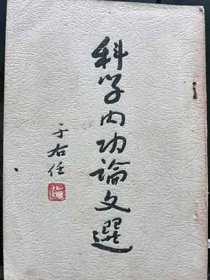 科学内功論文選
于右任